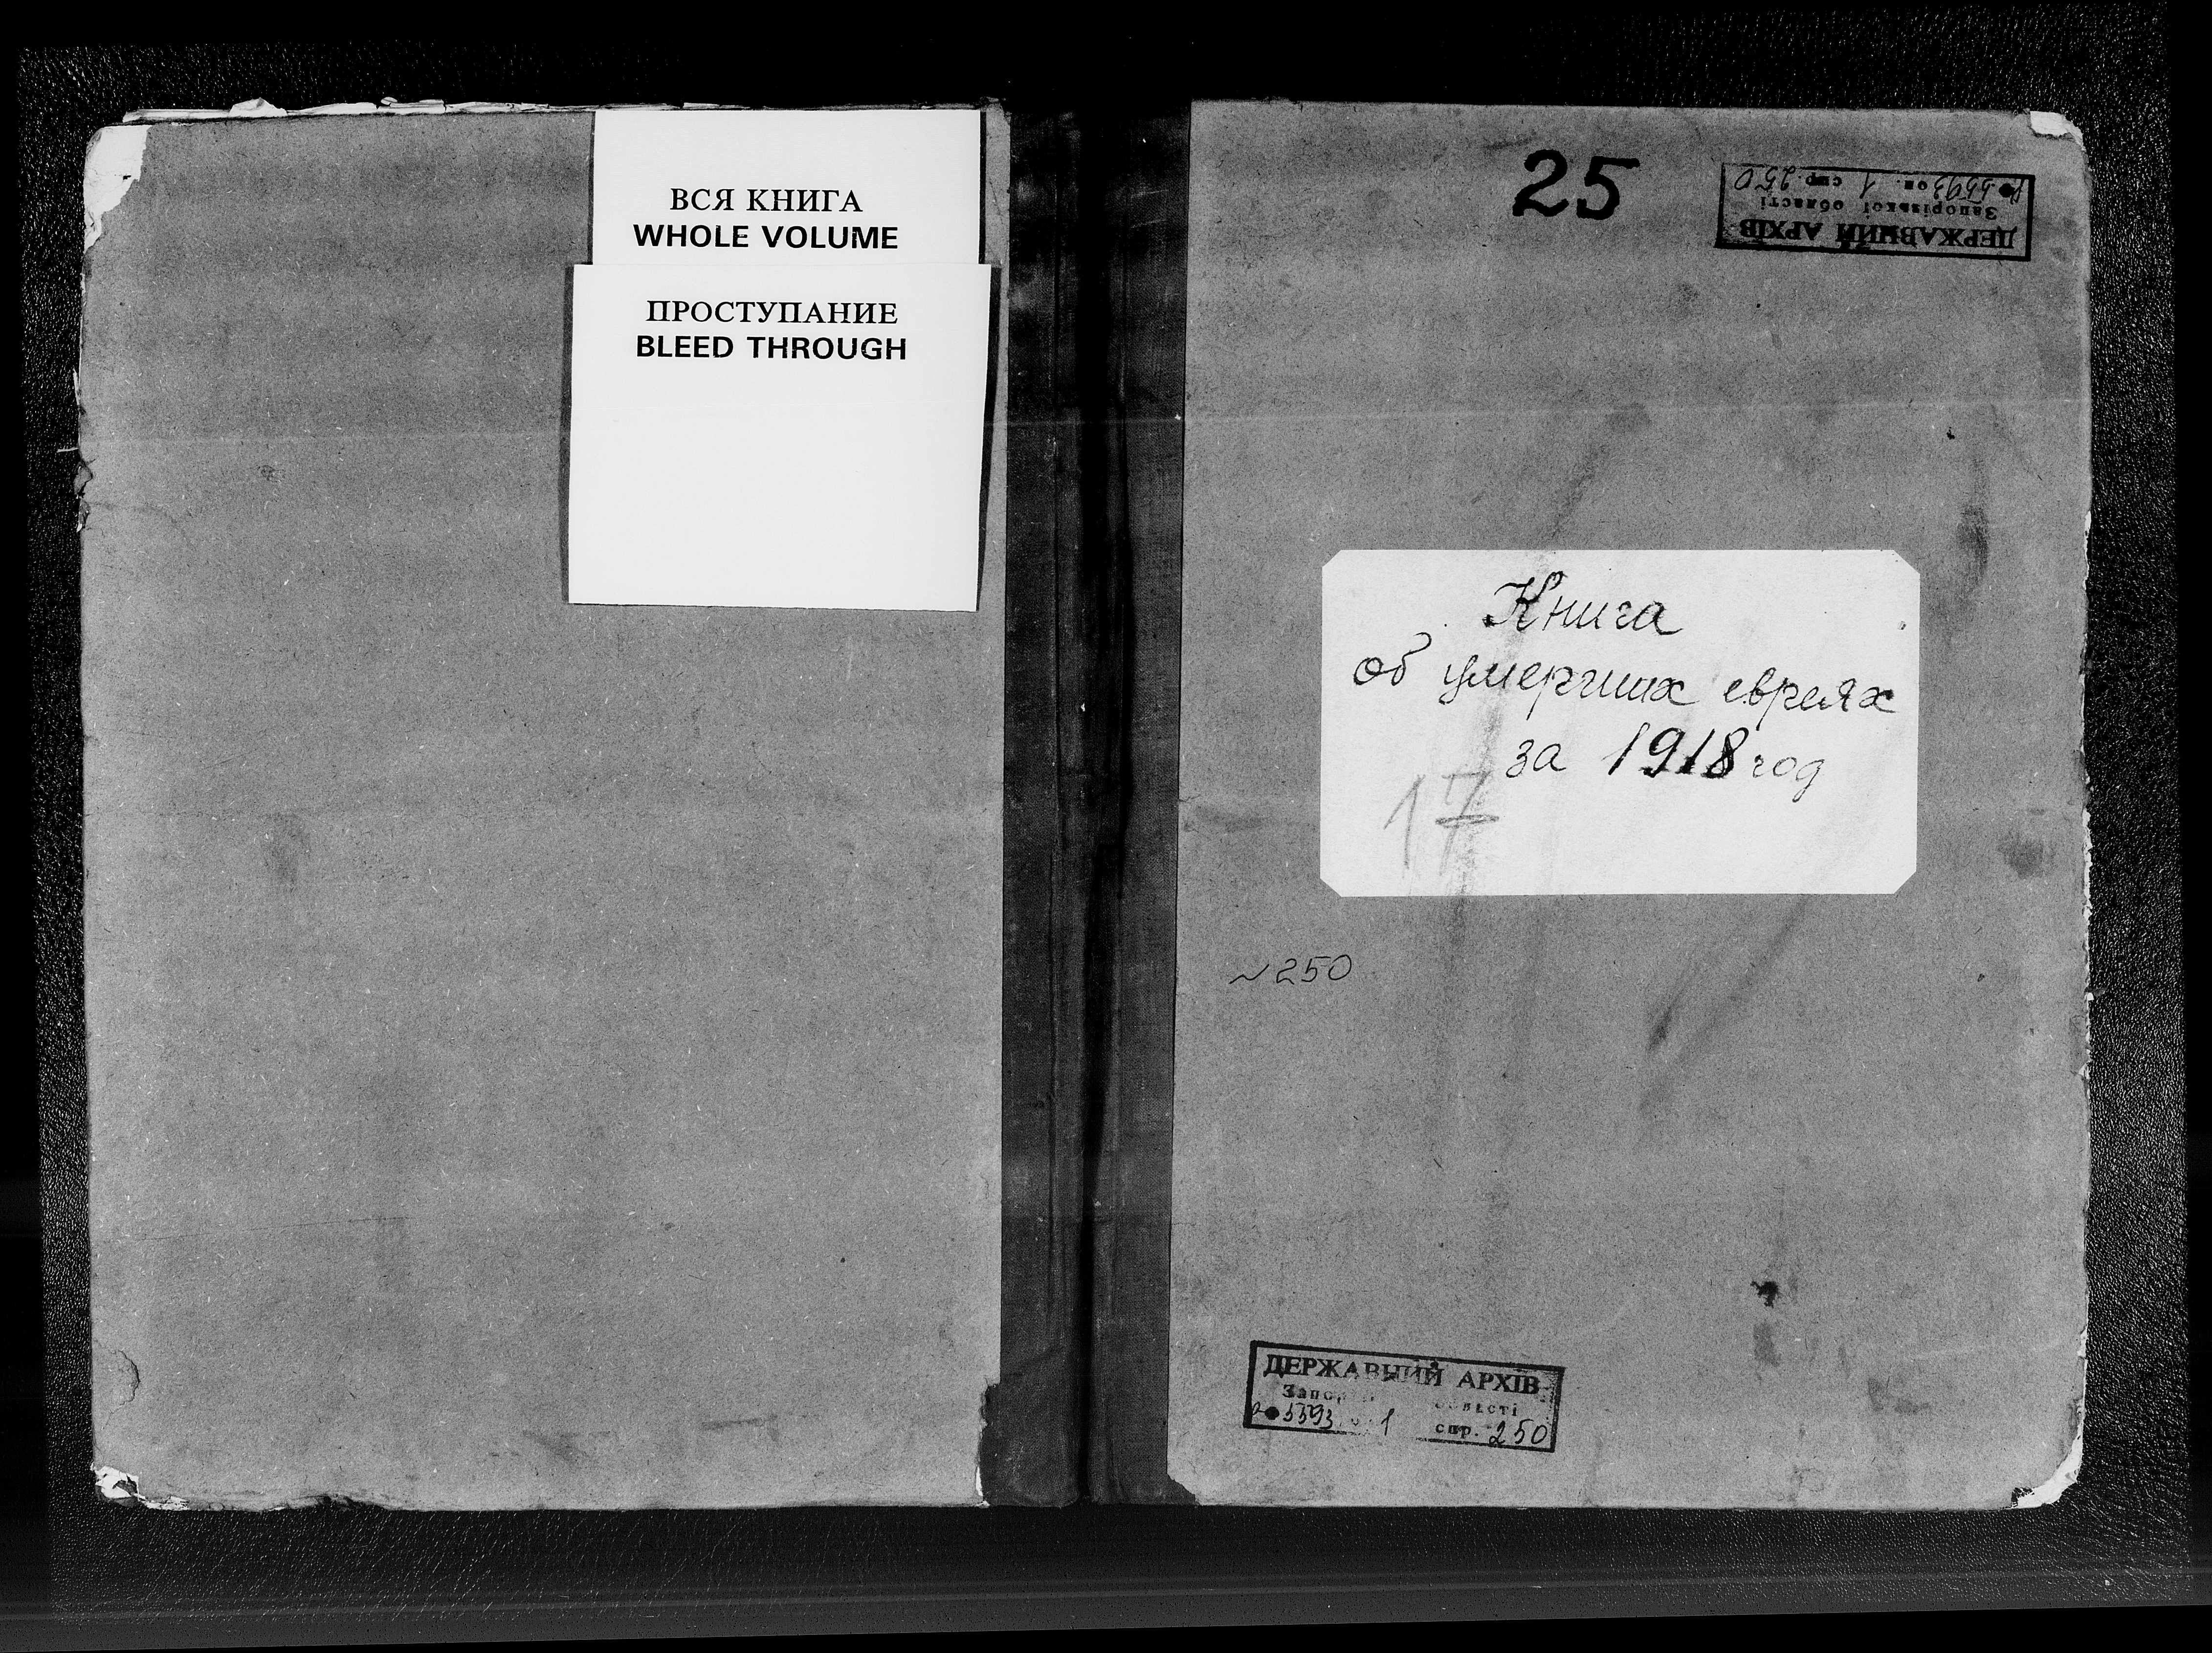 ВСЯ КНИГА
WHOLE VOLUME
ПРОСТУПАНИЕ
BLEED THROUGH
25
ДЕРЖАВНИЙ АРХІВ
Запорізької області
5593 оп. 1 спр. 250
Книга
об умерших евреях
за 1918 год
17
~250
ДЕРЖАВНИЙ АРХІВ
області
5593 1 спр. 250